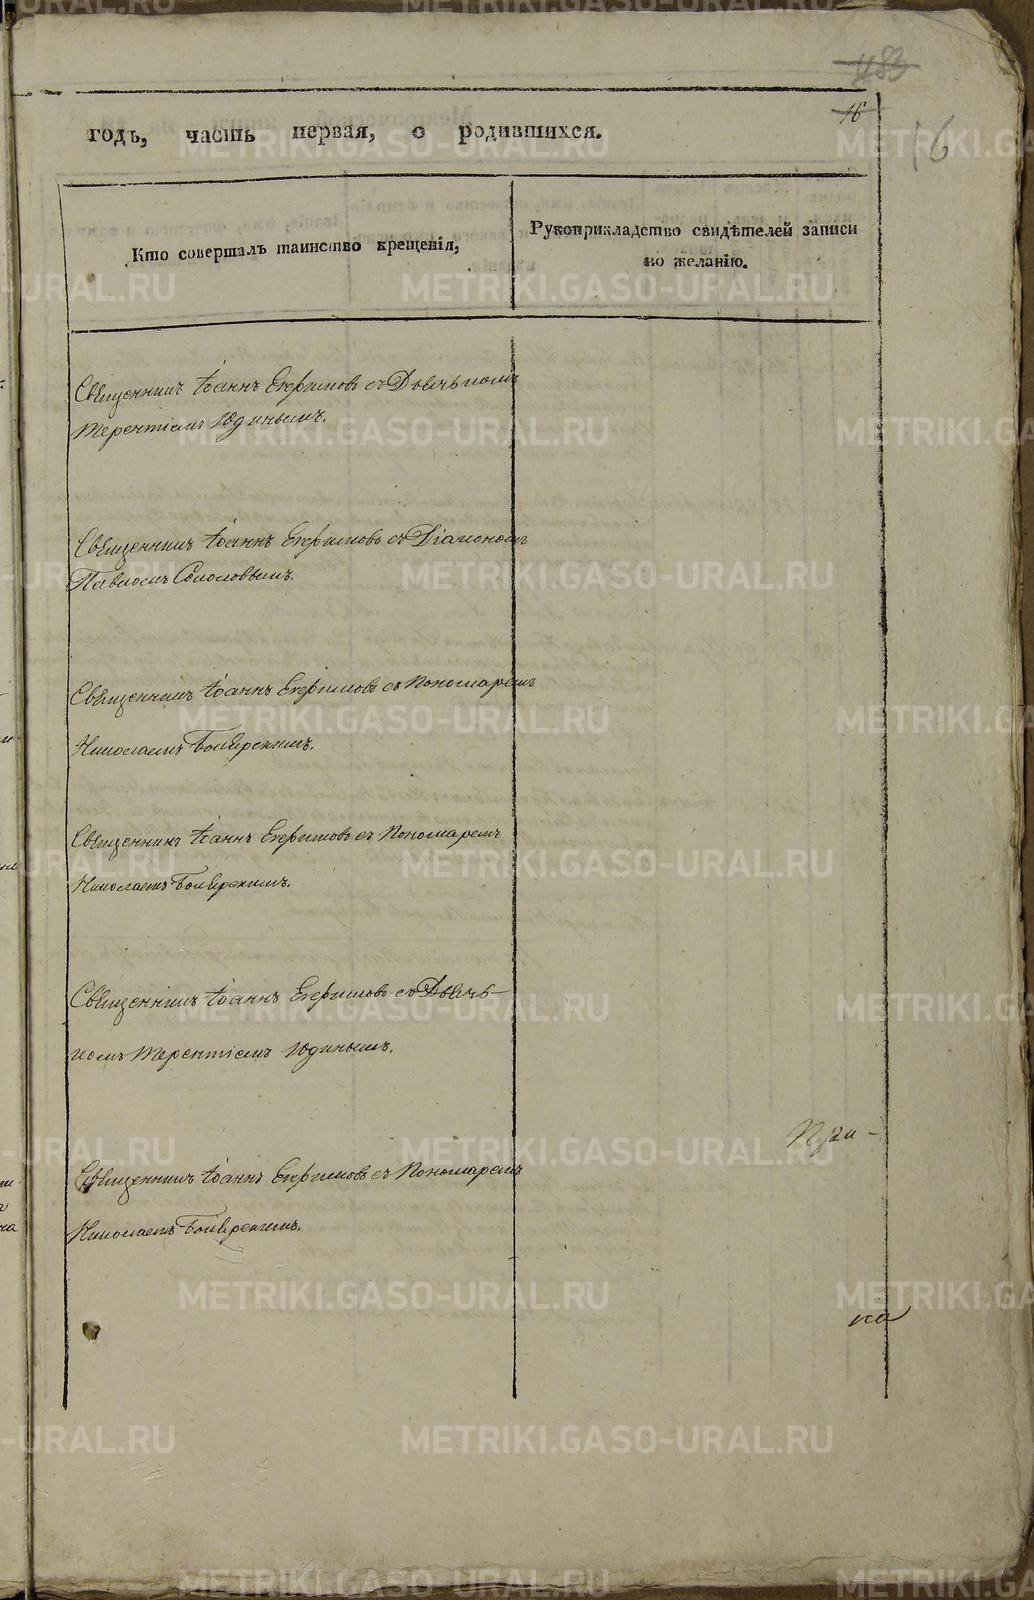 483
16
16
годъ, часть первая, о родившихся.
Кто совершалъ таинство крещенія,
Рукоприкладство свидѣтелей записи
по желанію.
Священникъ Іоаннъ Ефимовъ съ Дьячькомъ
Терентіемъ Юдинымъ.
Священникъ Іоаннъ Ефимовъ съ Діакономъ
Павломъ Соколовымъ.
Священникъ Іоаннъ Ефимовъ съ Пономаремъ
Николаемъ Боярскимъ.
Священникъ Іоаннъ Ефимовъ съ Пономаремъ
Николаемъ Боярскимъ.
Священникъ Іоаннъ Ефимовъ съ Дьячь-
комъ Терентіемъ Юдинымъ.
При-
Священникъ Іоаннъ Ефимовъ съ Пономаремъ
Николаемъ Боярскимъ.
ка
METRIKI.GASO-URAL.RU